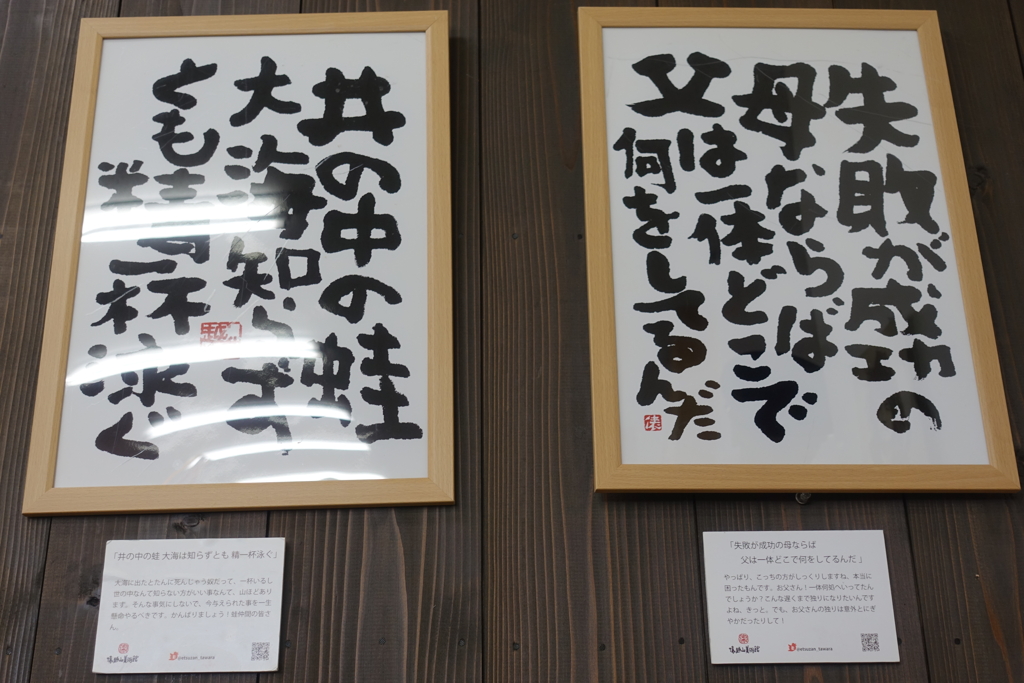 井の中の蛙
大海知らず
とも精一杯泳ぐ
「井の中の蛙 大海は知らずとも 精一杯泳ぐ」
大海に出たとたんに死んじゃう奴だって、一杯いるし
世の中なんて知らない方がいい事なんて、山ほどあり
ます。そんな事気にしないで、今与えられた事を一生
懸命やるべきです。がんばりましょう！蛙仲間の皆さ
ん。
失敗が成功の
母ならば
父は一体どこで
何をしてるんだ
「失敗が成功の母ならば
父は一体どこで何をしてるんだ」
やっぱり、こっちの方がしっくりしますね、本当に
困ったもんです、お父さん！一体何処へいってたん
でしょうか？こんな遅くまで独りになりたいんです
よね、きっと。でも、お父さんの独りは意外とにぎ
やかだったりして！